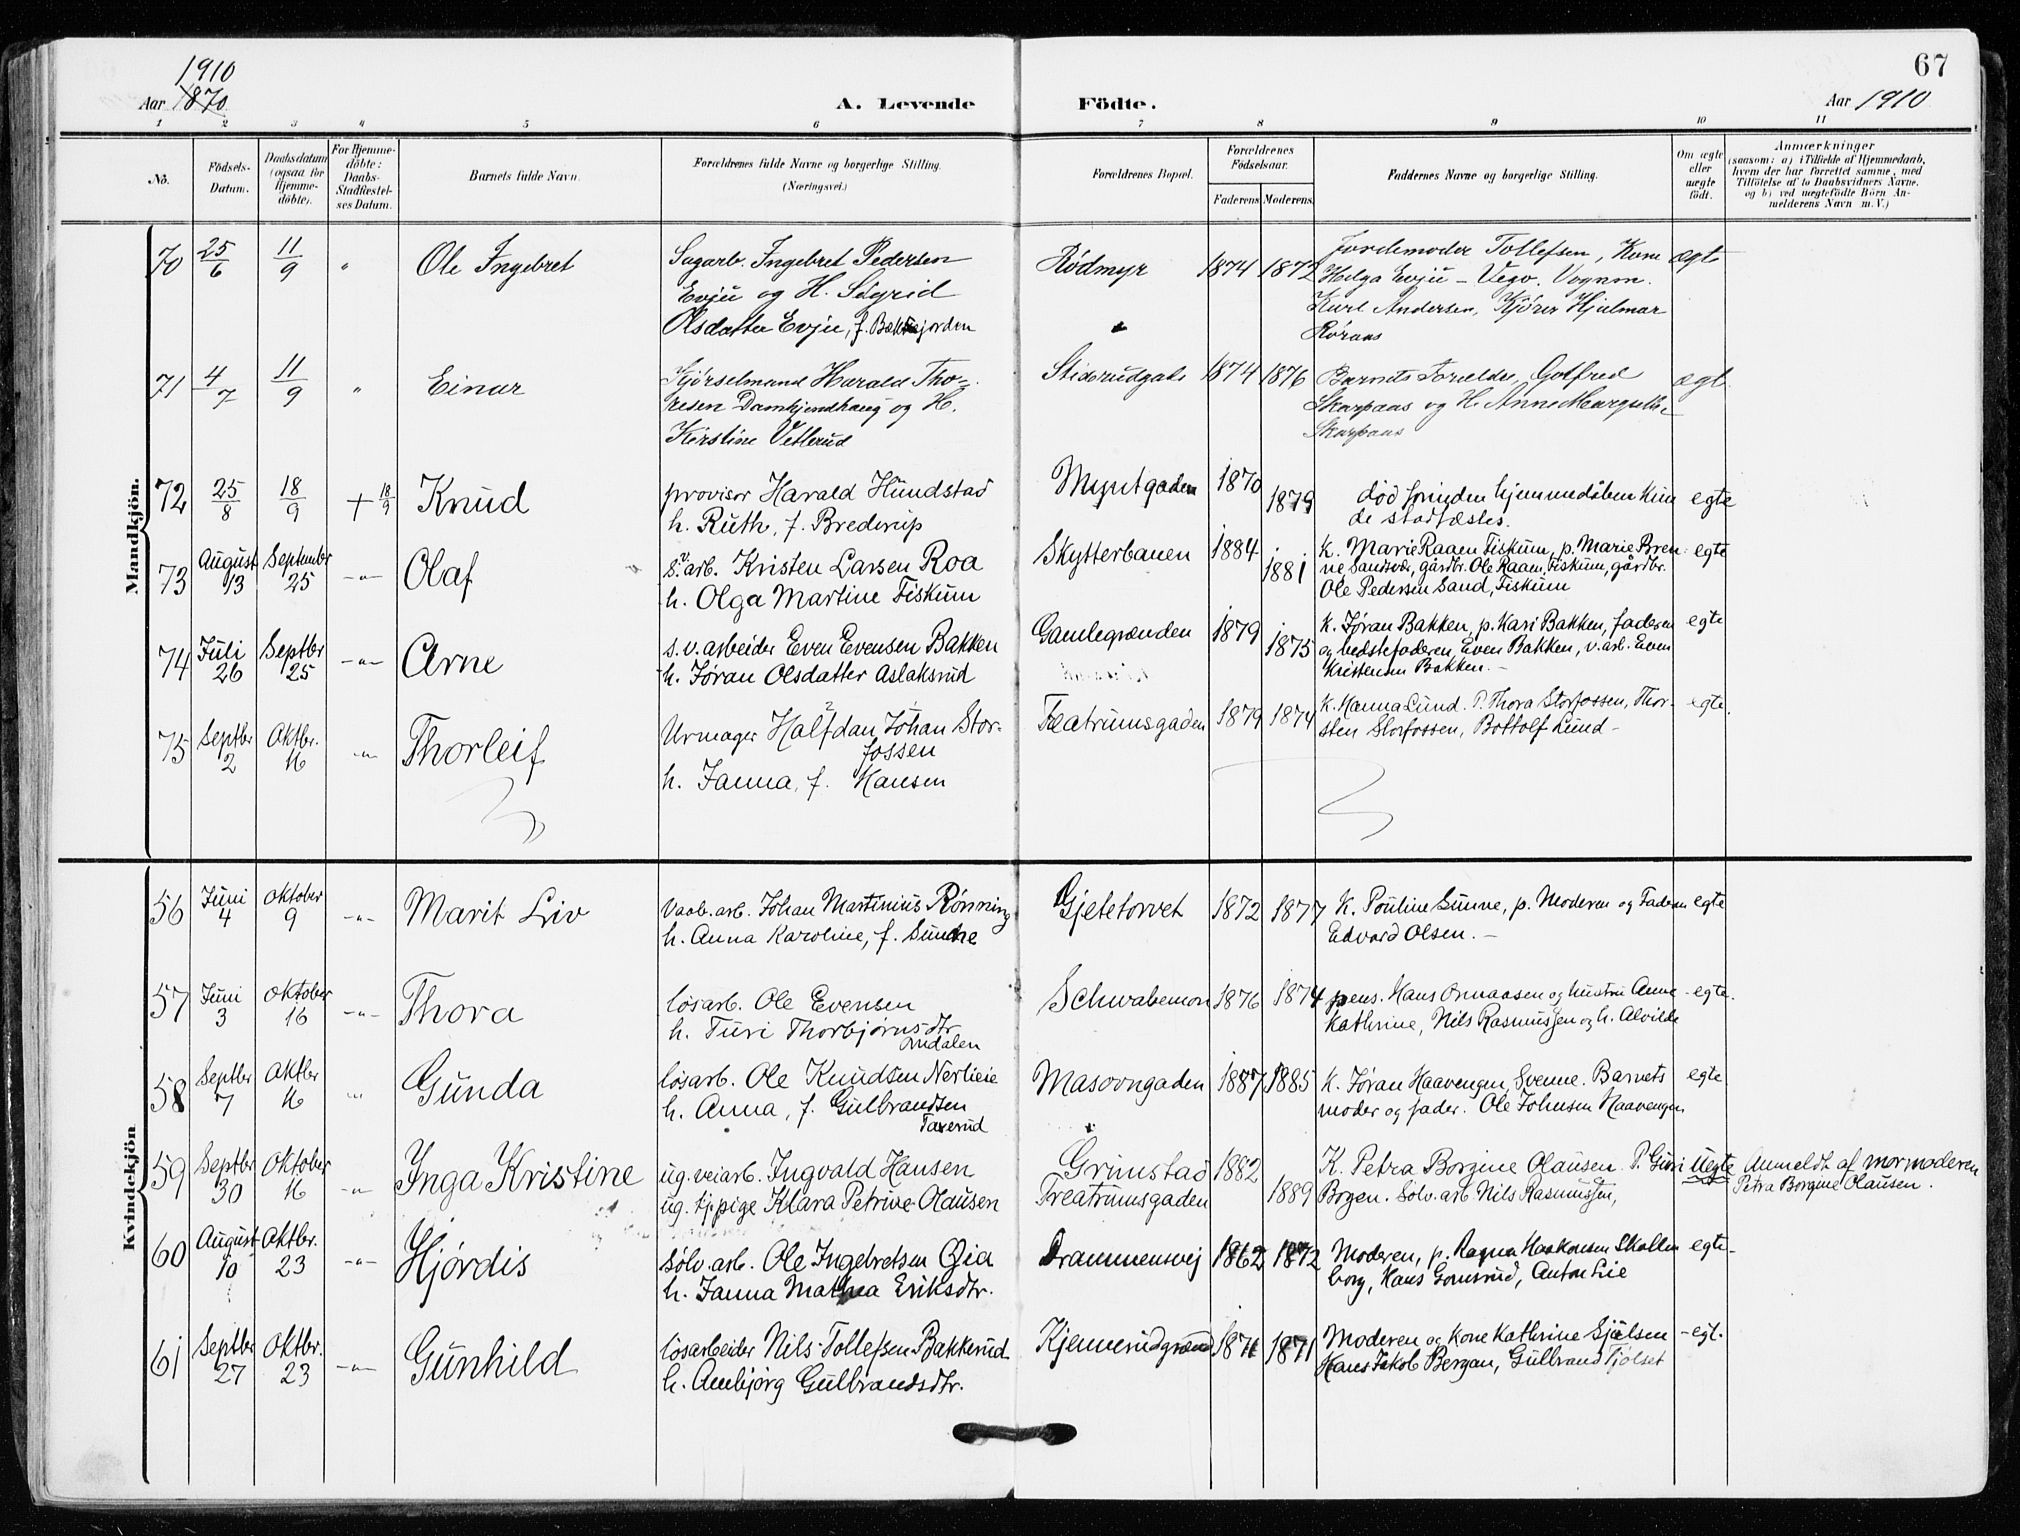 67
1910
Aar 1870
A. Levende
Födte.
Aar 1910
1 2 3 4 5 6 7 8 9 10 11
No.
Födsels-
Datum.
Daabsdatum
(ogsaa for
Hjemme-
döbte).
For Hjemme-
döbte:
Daabs-
Stadfæstel-
ses Datum.
Barnets fulde Navn.
Forældrenes fulde Navne og borgerlige Stilling.
(Næringsvei.)
Forældrenes Bopæl.
Forældrenes
Födselsaar.
Faderens
Moderens
Faddernes Navne og borgerlige Stilling.
Om ægte
eller
uægte
födt.
Anmærkninger
(saasom: a) i Tilfælde af Hjemmedaab,
hvem der har forrettet samme, med
Tilföielse af to Daabsvidners Navne,
og b) ved uægtefödte Börn An-
melderens Navn m. V.)
Mandkjön.
70 25/6 11/9 " Ole Ingebret
Sagarb. Ingebret Pedersen
Evju og H. Sigrid
Olsdatter Evju, f. Bækkejorden
Rødmyr 1874 1872
Jordemoder Tollefsen, Kone
Helga Evju - Vegv. Vognm.
Karl Andersen, Kjører Hjalmar
Røraas
ægte
71 4/7 11/9 " Einar
Kjørselmand Harald Tho-
resen Damhjendhaug og H.
Kirstine Vetlerud
Stiorudgate 1874 1876
Barnets Forældre, Gotfred
Skarpaas og H. Anne Margrethe
Skarpaas
ægt.
72 25/8 18/9 + 18/9 Knud
provisor Harald Hundstad
h. Ruth, f. Brederup
Myntgaden 1870 1879
død forinden hjemmedåben kun
de stadfæstes.
egte
73 August 13 September 25 -"- Olaf
s.v. arb. Kristen Larsen Roa
h. Olga Martine Fiskum
Skytterbanen 1884 1881
K. Marie Raaen Fiskum, p. Marie Bren
ne Sandsvær, gårdbr. Ole Raaen, Fiskum, gårdbr.
Ole Pedersen Sand, Fiskum
egte
74 Juli 26 Septbr 25 -"- Arne
s.v. arbeider Even Evensen Bakken
h. Jøran Olsdatter Aslaksrud
Gamlegrænden 1879 1875
K. Jøran Bakken, p. Kari Bakken, faderen
og bedstefaderen, Even Bakken, v. arb. Even
Kristensen Bakken. -
egte
75 Septbr 2 Oktbr. 16 -"- Thorleif
Urmager Halfdan Johan Stor-
fossen
h. Janna, f. Hansen
Teatrumsgaden 1879 1874
K. Hanna Lund. P. Thora Storfossen, Thor-
sten Storfossen, Bottolf Lund -
egte.
Kvindekjön
56 Juni 4 Oktober 9 -"- Marit Liv
Vaab. arb. Johan Martinius Rønning
h. Anna Karoline, f. Sunne
Gjetetorvet 1872 1877
K. Pouline Sunne, p. Moderen og Faderen
Edvard Olsen. -
egte
57 Juni 3 Oktober 16 -"- Thora
løsarb. Ole Evensen
h. Turi Thorbjørnsdtr
Lndalen
Schwabemon 1876 1874
pens. Hans Omaasen og hustru Anne
Kathrine, Nils Rasmussen og h. Alvilde
egte.
58 Septbr 7 Oktbr 16 -"- Gunda
løsarb. Ole Knudsen Nerlieie
h. Anna, f. Gulbrandsen
Taxerud
Masovngaden 1887 1885
K. Jøran Haavengen, Svenne. Barnets
moder og fader. Ole Johnsen Haavengen
egte
59 Septbr 30 Oktober 16 -"- Inga Kristine
ug. veiarb. Ingvald Hansen
ug. tj. pige Klara Petrine Olausen
Grimstad 1882
Treatrumsgaden 1889
K. Petra Borgine Olausen. P. Guri
Borgen. Sølv. arb. Nils Rasmussen,
Uegte
Anmeldt af mormoderen
Petra Borgine Olausen.
60 August 10 Oktbr. 23 -"- Hjørdis
sølv. arb. Ole Ingebretsen Øia
h. Janna Mathea Eriksdtr.
Drammensvej 1862 1872
Moderen, p. Ragna Haakonsen Skollen
borg, Hans Gomsrud, Anton Lie
egte-
61 Septbr 27 Oktbr. 23 -"- Gunhild
løsarbeider Nils Tollefsen Bakkerud
h. Anbjørg Gulbrandsdtr.
Kjennerudgrænd 1871 1871
Moderen og Kone Kathrine Sjølsen
Hans Jakob Bergan, Gulbrand Fjølset
-egt.